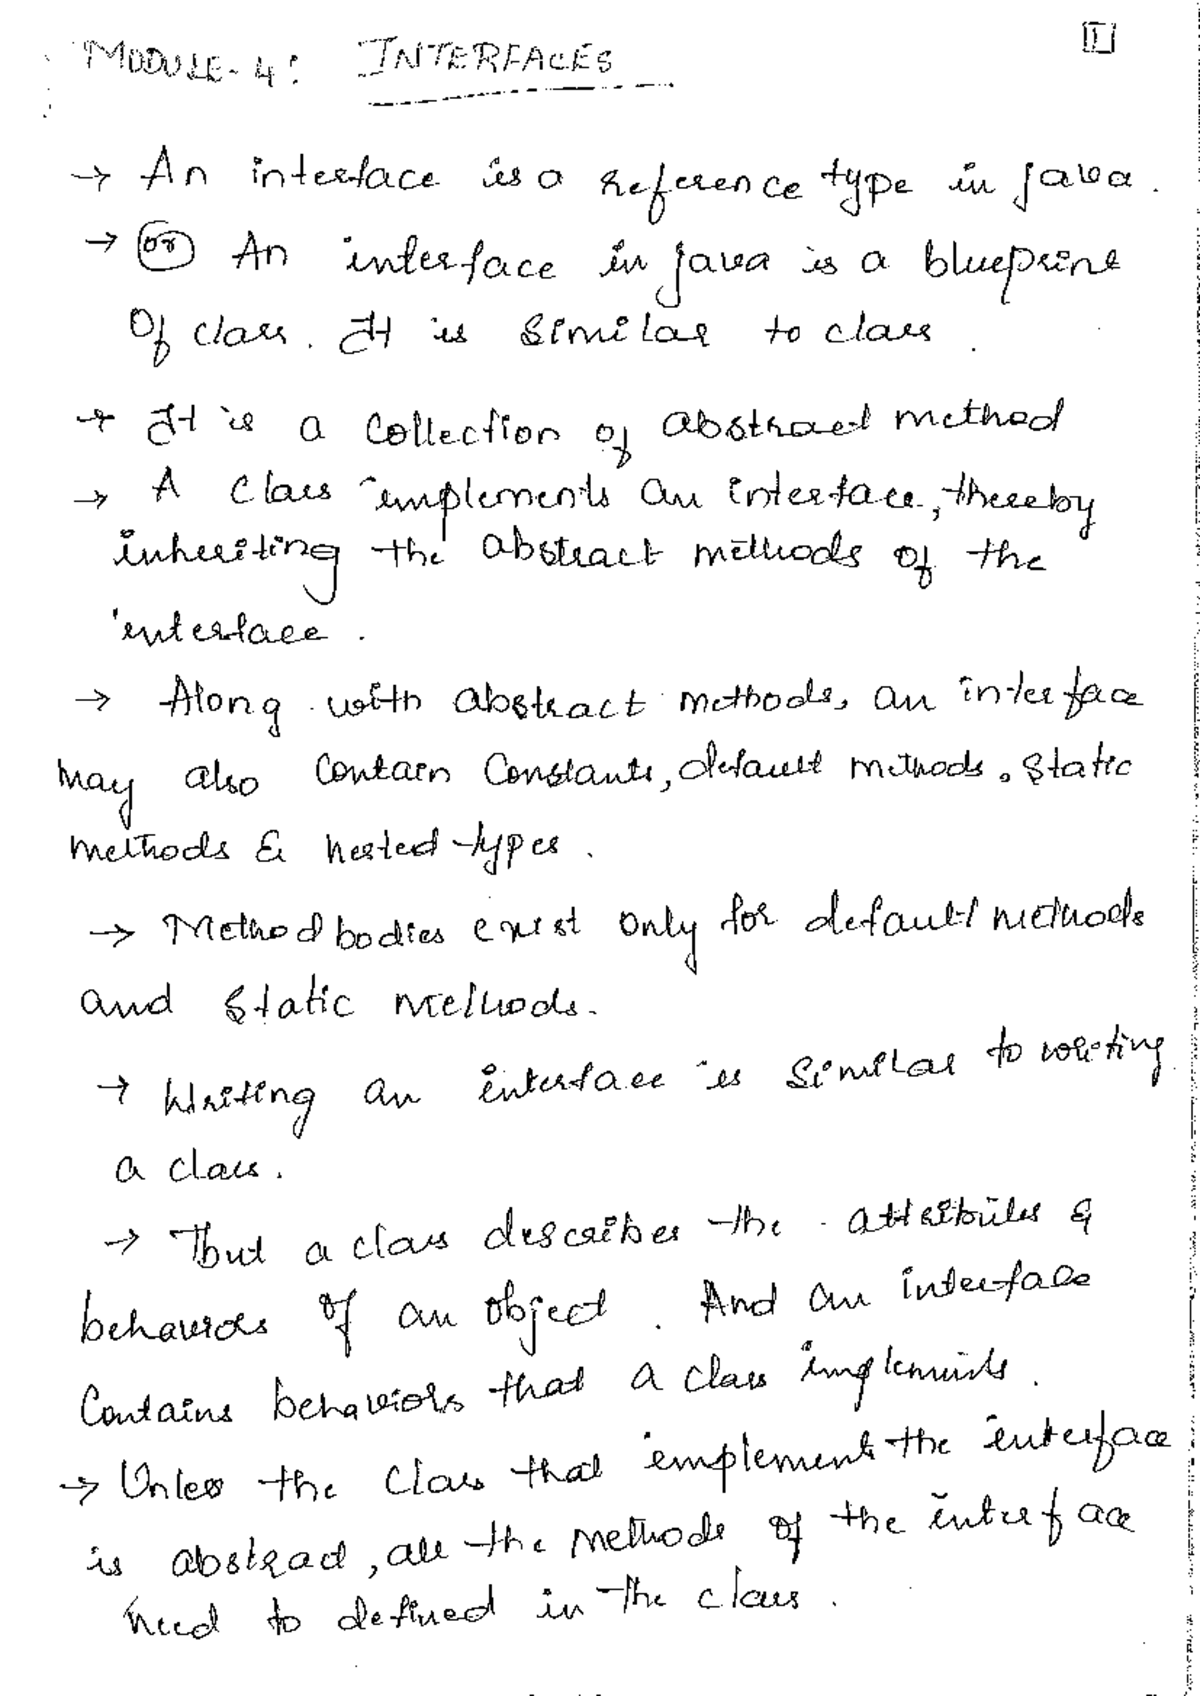 MODULE-4: INTERFACES
1
→ An interface is a reference type in java.
→ (or) An interface in java is a blueprint
Of class. It is similar to class.
→ It is a collection of abstract method
→ A class implements an interface, thereby
inheriting the abstract methods of the
interface.
→ Along with abstract methods, an interface
may also contain constants, default methods, static
methods & nested types.
→ Method bodies exist only for default methods
and static methods.
→ Writing an interface is similar to writing
a class.
→ But a class describes the attributes &
behaviors of an object. And an interface
contains behaviors that a class implements.
→ Unless the class that implements the interface
is abstract, all the methods of the interface
need to defined in the class.